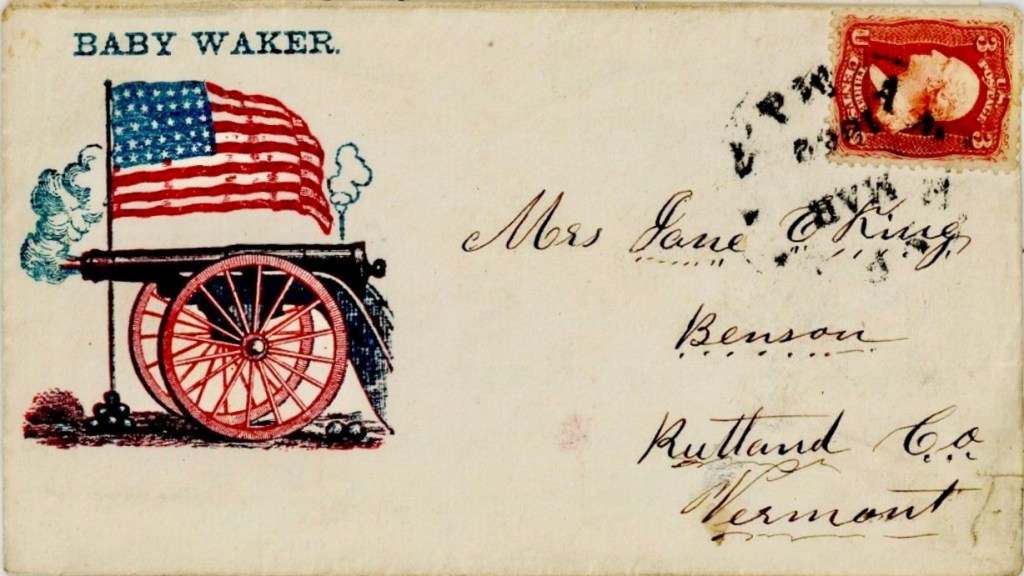 BABY WAKER.
U.S. POSTAGE
3 3
Mrs Jane E King
Benson
Rutland Co
Vermont